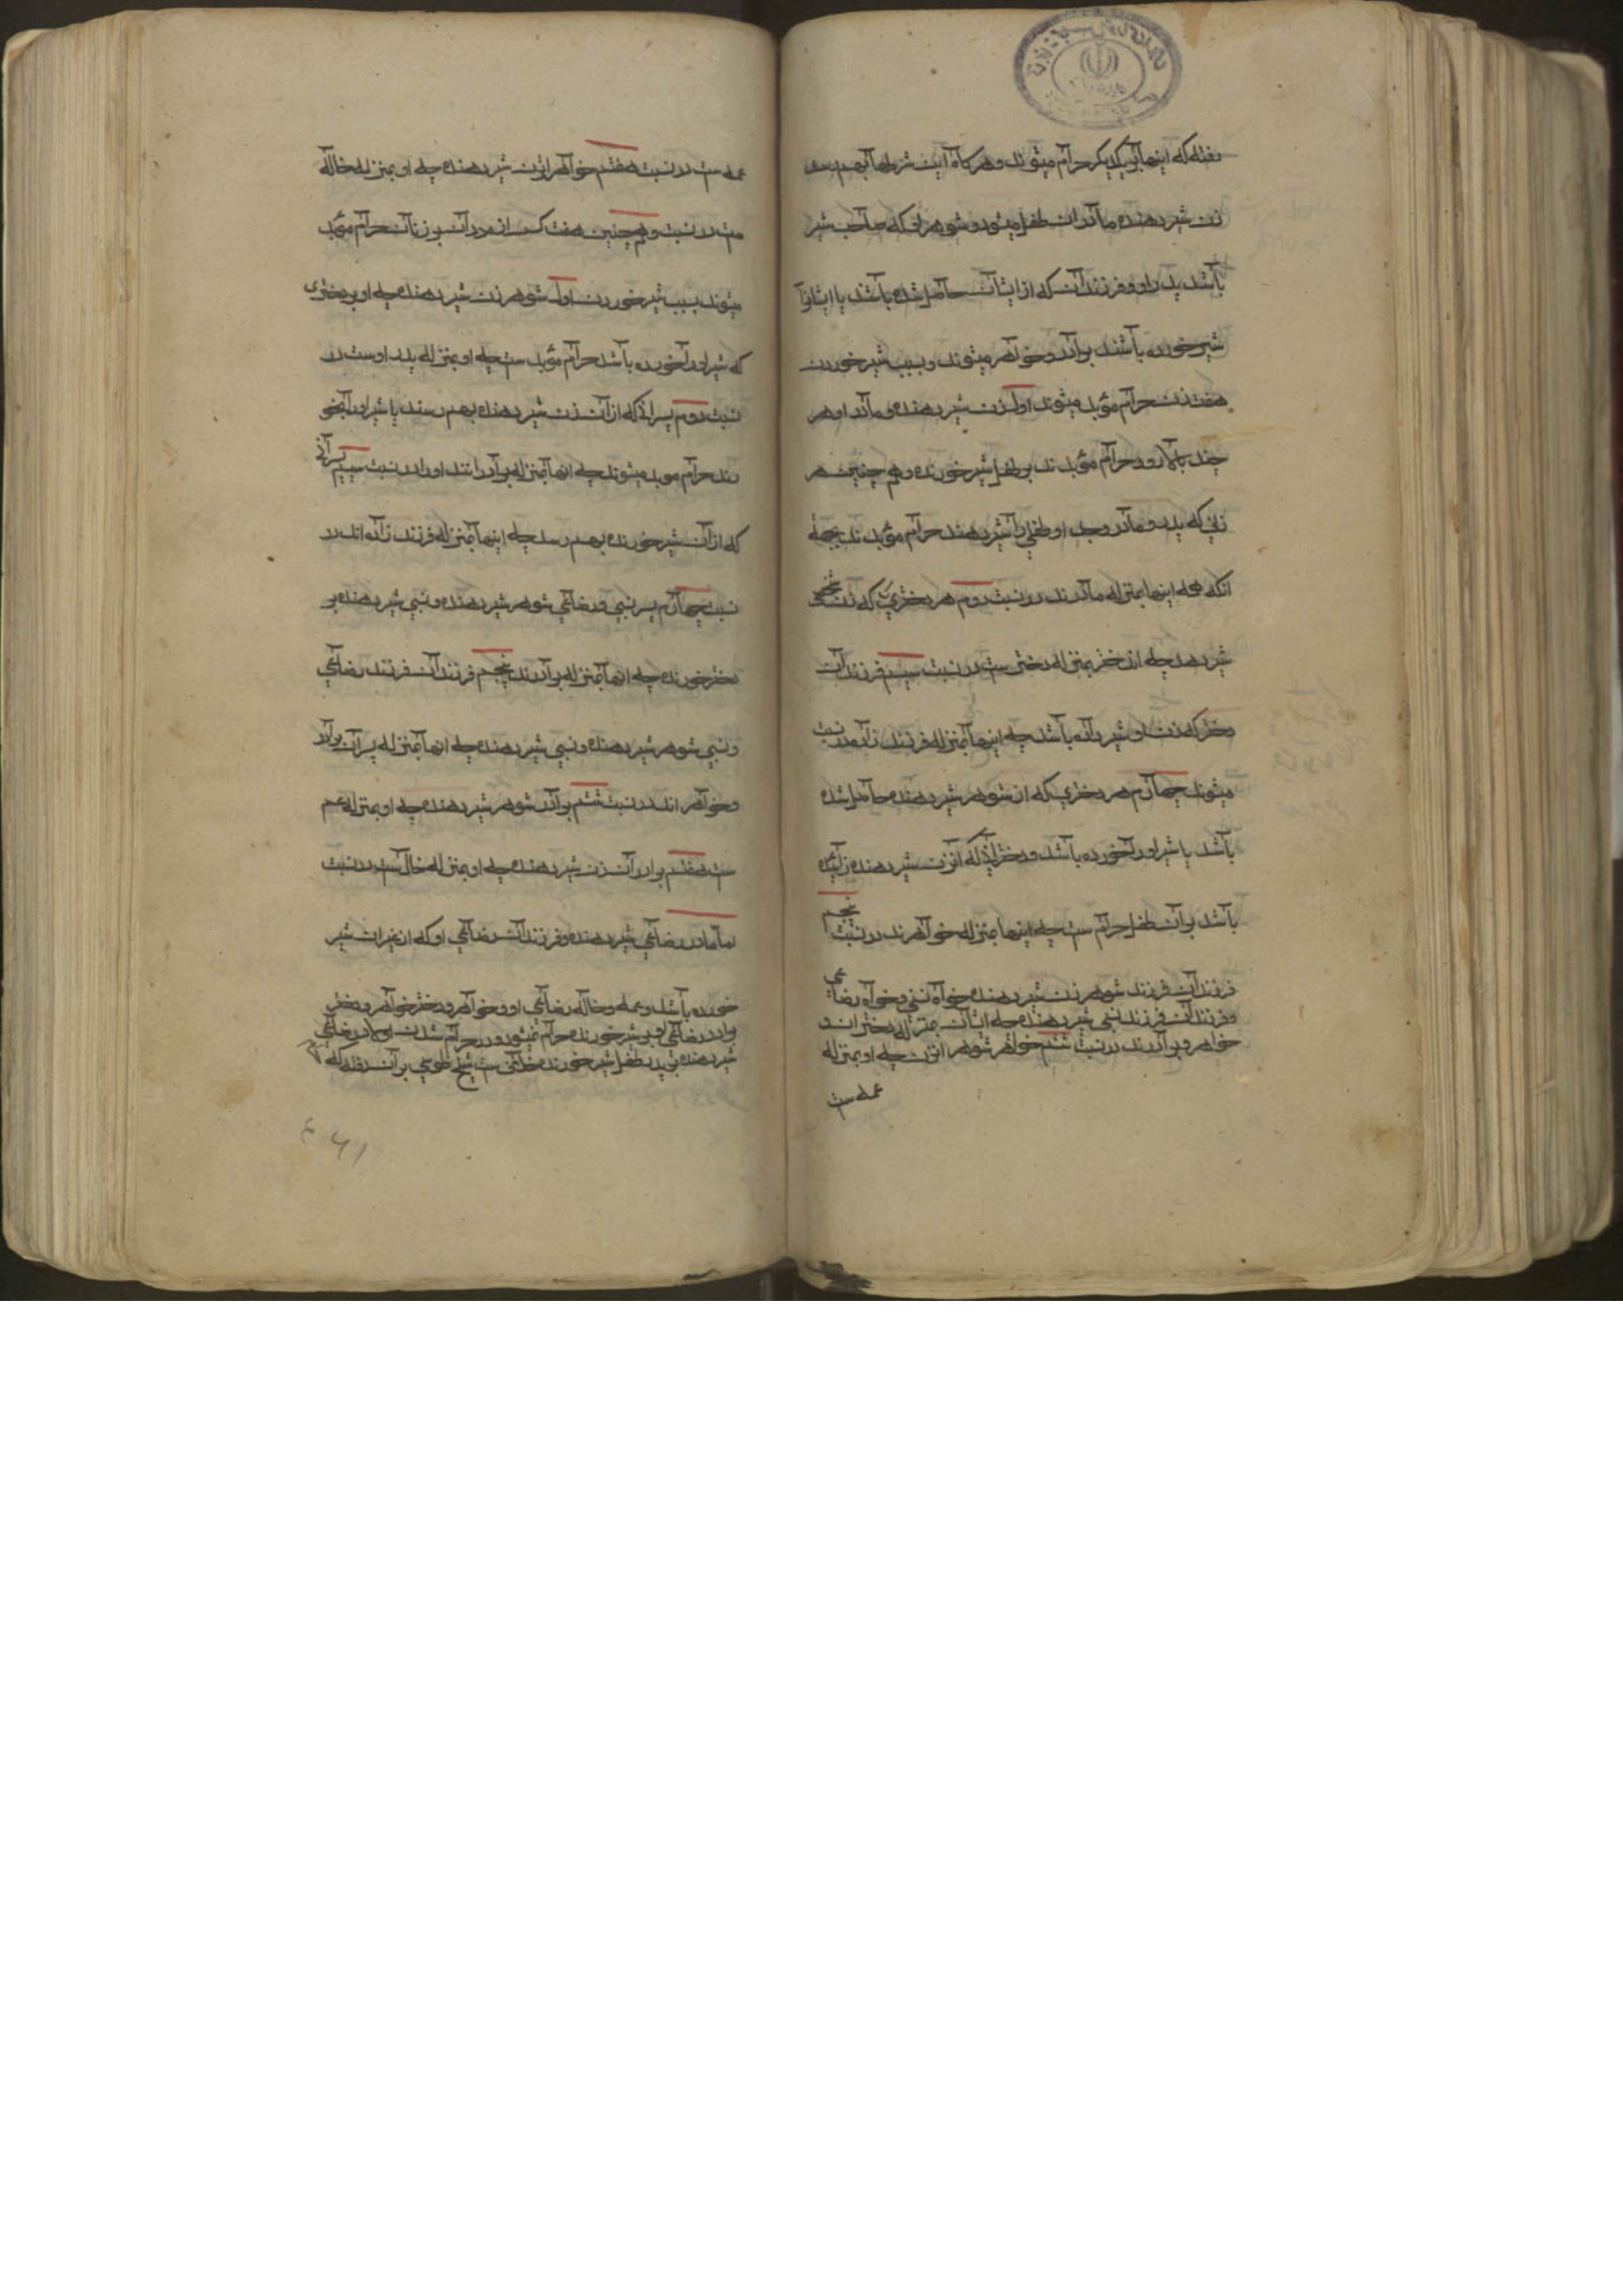 رفته که اینها بر یکدیگر حرام میشوند و هرگاه این شرطها بهم رسد
زن شیر دهنده مادر ان طفل میشود و شوهر او که صاحب شیر
باشد پدر او و فرزندان که از ایشان حاصل شده باشد یا ایشانرا
شیر خورده باشند برادر و خواهر میشوند و بسبب شیر خوردن
هفت زن حرام مؤبد میشوند اول زن شیر دهنده و مادر او هر
چند بالا رود حرام مؤبدند بر طفل شیر خورنده و هم چنین هر
زنی که پدر و مادر وجد او طفلی را شیر دهند حرام مؤبدند بجهة
انکه همه اینها بمنزله مادرند در نسبت دوم هر دختری که زن شخصی
شیر دهد چه ان دختر بمنزله دختر ست در نسبت سیم فرزندان
دختر که زن او شیر داده باشد چه اینها بمنزله فرزند زاده در نسبت
میشوند چهارم هر دختری که از شوهر شیر دهنده حاصل شده
باشد یا شیر او را خورده باشد و دخترانی که از زن شیر دهنده زائیده
باشد بر آن طفل حرام ست چه اینها بمنزله خواهرند در نسبت پنجم
فرزندان فرزند شوهر زن شیر دهنده خواه نسبی و خواه رضاعی
و فرزندان فرزند نسبی شیر دهنده چه ایشان بمنزله دختران
خواهر و برادرند در نسبت ششم خواهر شوهر انزن چه او بمنزله
عمه ست
عمه ست در نسبت هفتم خواهر انزن شیر دهنده چه او بمنزله خاله
ست در نسبت و هم چنین هفت کس از مردان بر زنان حرام مؤبد
میشوند بسبب شیر خوردن اول شوهر زن شیر دهنده چه او بر دختری
که شیر او را خورده باشد حرام مؤبد ست چه او بمنزله پدر اوست در
نسبت دوم پسرانی که از آن زن شیر دهنده بهم رسند یا شیر او را خو
رند حرام موبد میشوند چه انها بمنزله برادرانند او را در نسبت سیم پسرانی
که از آن شیر خورنده بهم رسد چه اینها بمنزله فرزند زاده اند در
نسبت چهارم پسر نسبی و رضاعی شوهر شیر دهنده و نسبی شیر دهنده بر
دختر خورنده چه انها بمنزله برادرند پنجم فرزندان فرزند رضاعی
و نسبی شوهر شیر دهنده و نسبی شیر دهنده چه انها بمنزله پسران برادر
و خواهر اند در نسبت ششم برادر شوهر شیر دهنده چه او بمنزله عم
ست هفتم برادر آن زن شیر دهنده چه او بمنزله خال ست در نسبت
اما مادر رضاعی شیر دهنده و فرزندان رضاعی او که از غیر ان شیر
خورده باشد و عمه و خاله رضاعی او و خواهر و دختر خواهر و دختر
برادر رضاعی او بر شیر خورنده حرام نمیشود و در حرام شدن اولاد رضاعی
شیر دهنده بر پدر طفل شیر خورنده خلافی ست شیخ طوسی بر آن رفته که